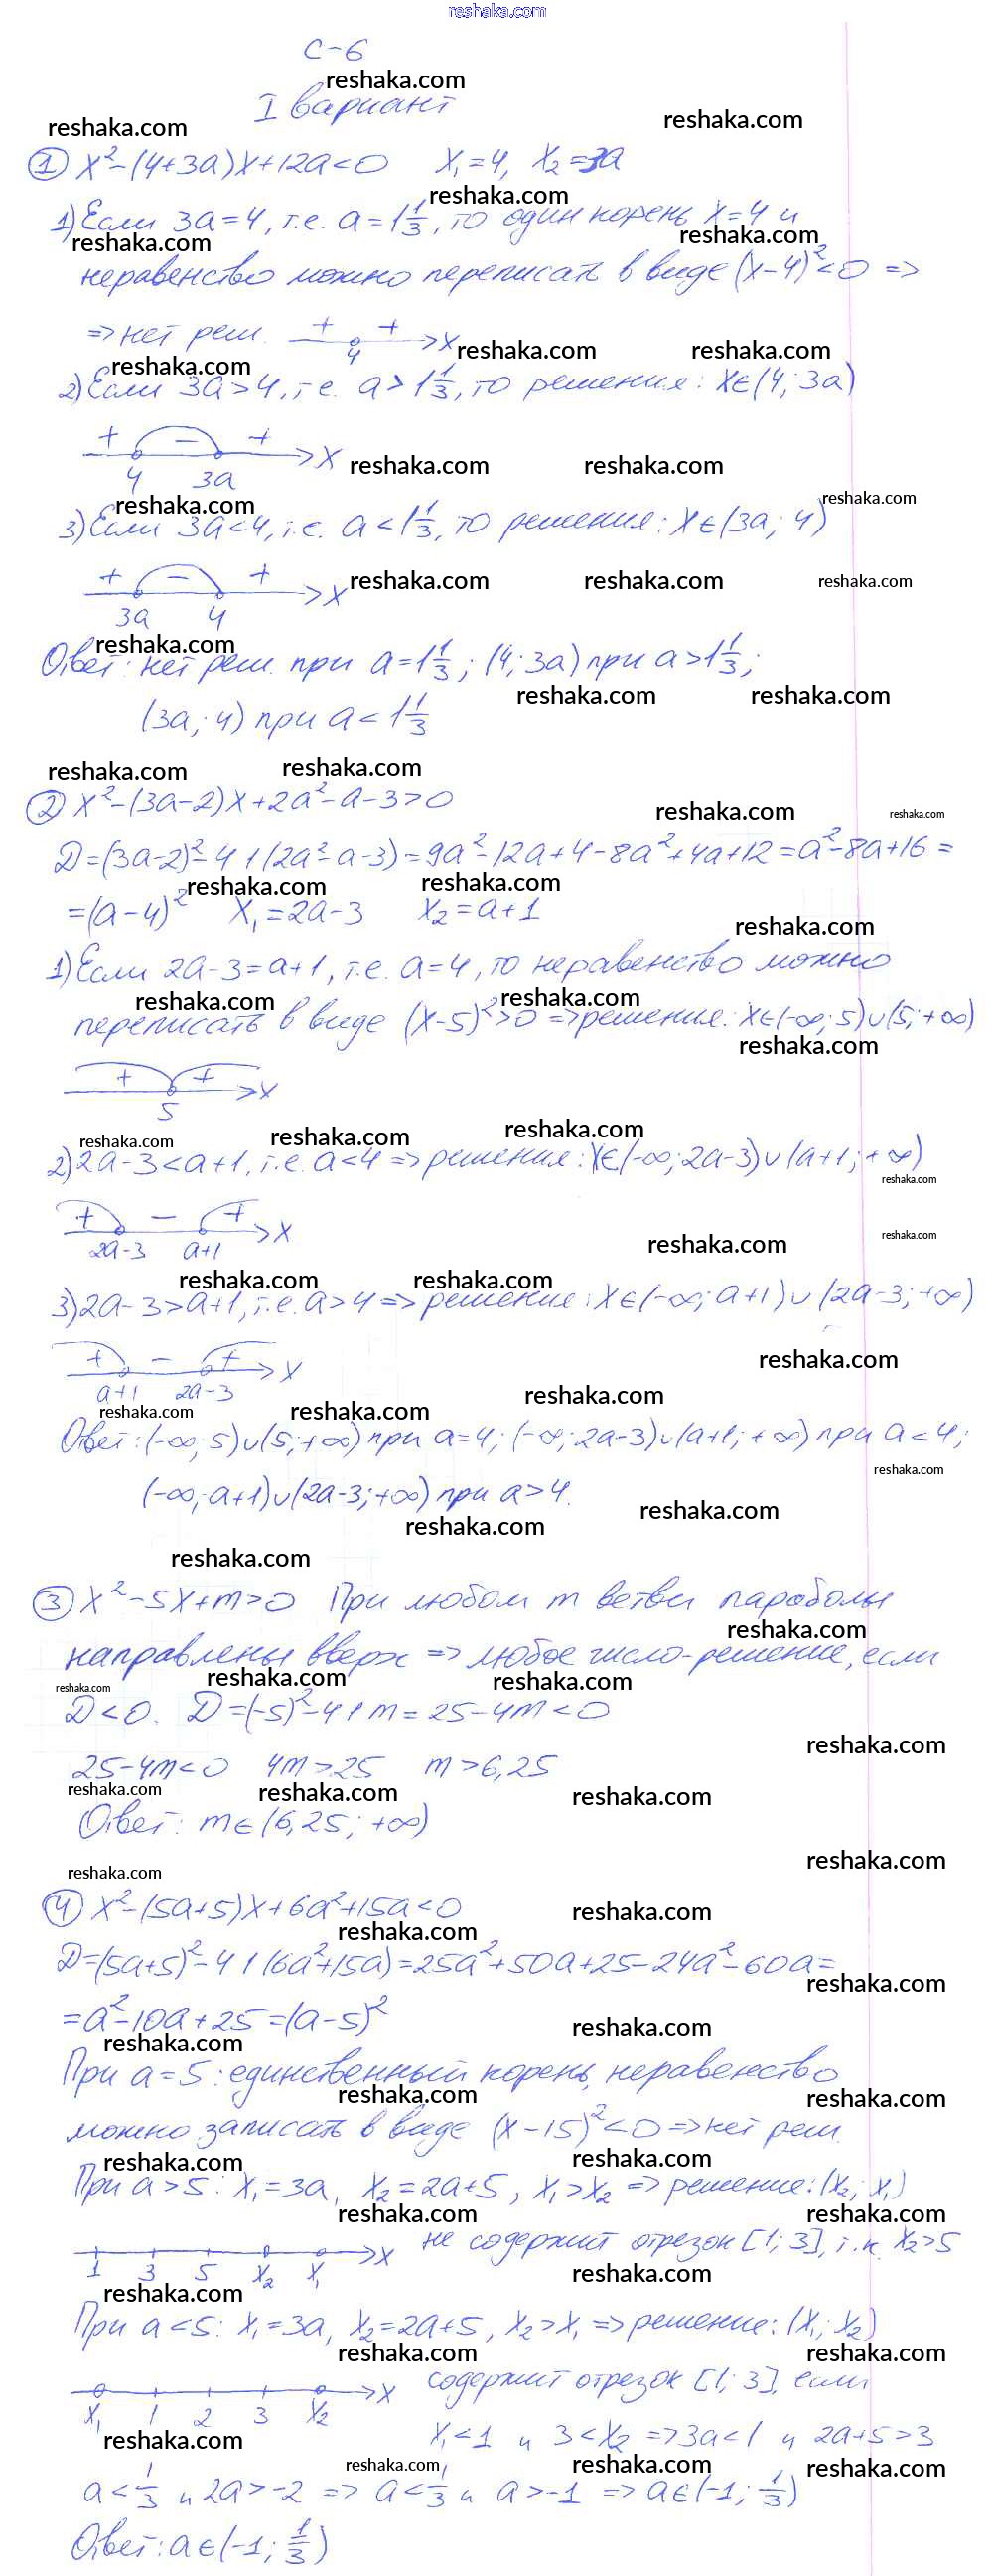 reshaka.com
С-6
I вариант
① x²-(4+3a)x+12a<0 x₁=4, x₂=3a
1) Если 3a=4, т.е. a=1 1/3, то один корень x=4 и
неравенство можно переписать в виде (x-4)²<0 =>
=> нет реш. + 4 + x
2) Если 3a>4, т.е. a>1 1/3, то решения: x∈(4; 3a)
+ - + x
4 3a
3) Если 3a<4, т.е. a<1 1/3, то решения: x∈(3a; 4)
+ - + x
3a 4
Ответ: нет реш. при a=1 1/3; (4; 3a) при a>1 1/3;
(3a; 4) при a<1 1/3
② x²-(3a-2)x+2a²-a-3>0
D=(3a-2)²-4·1·(2a²-a-3)=9a²-12a+4-8a²+4a+12=a²-8a+16=
=(a-4)² x₁=2a-3 x₂=a+1
1) Если 2a-3=a+1, т.е. a=4, то неравенство можно
переписать в виде (x-5)²>0 => решения: x∈(-∞; 5)∪(5; +∞)
+ + x
5
2) 2a-3<a+1, т.е. a<4 => решения: x∈(-∞; 2a-3)∪(a+1; +∞)
+ - + x
2a-3 a+1
3) 2a-3>a+1, т.е. a>4 => решения: x∈(-∞; a+1)∪(2a-3; +∞)
+ - + x
a+1 2a-3
Ответ: (-∞; 5)∪(5; +∞) при a=4; (-∞; 2a-3)∪(a+1; +∞) при a<4;
(-∞; a+1)∪(2a-3; +∞) при a>4.
③ x²-5x+m>0 При любом m ветви параболы
направлены вверх => любое число-решение, если
D<0. D=(-5)²-4·1·m=25-4m<0
25-4m<0 4m>25 m>6,25
Ответ: m∈(6,25; +∞)
④ x²-(5a+5)x+6a²+15a<0
D=(5a+5)²-4·1·(6a²+15a)=25a²+50a+25-24a²-60a=
=a²-10a+25=(a-5)²
При a=5: единственный корень, неравенство
можно записать в виде (x-15)²<0 => нет реш.
При a>5: x₁=3a, x₂=2a+5, x₁>x₂ => решение: (x₂; x₁)
не содержит отрезок [1; 3], т.к. x₂>5
1 3 5 x₂ x₁ x
При a<5: x₁=3a, x₂=2a+5, x₂>x₁ => решение: (x₁; x₂)
содержит отрезок [1; 3], если
x₁ 1 2 3 x₂ x
x₁<1 и 3<x₂ => 3a<1 и 2a+5>3
a<1/3 и 2a>-2 => a<1/3 и a>-1 => a∈(-1; 1/3)
Ответ: a∈(-1; 1/3)